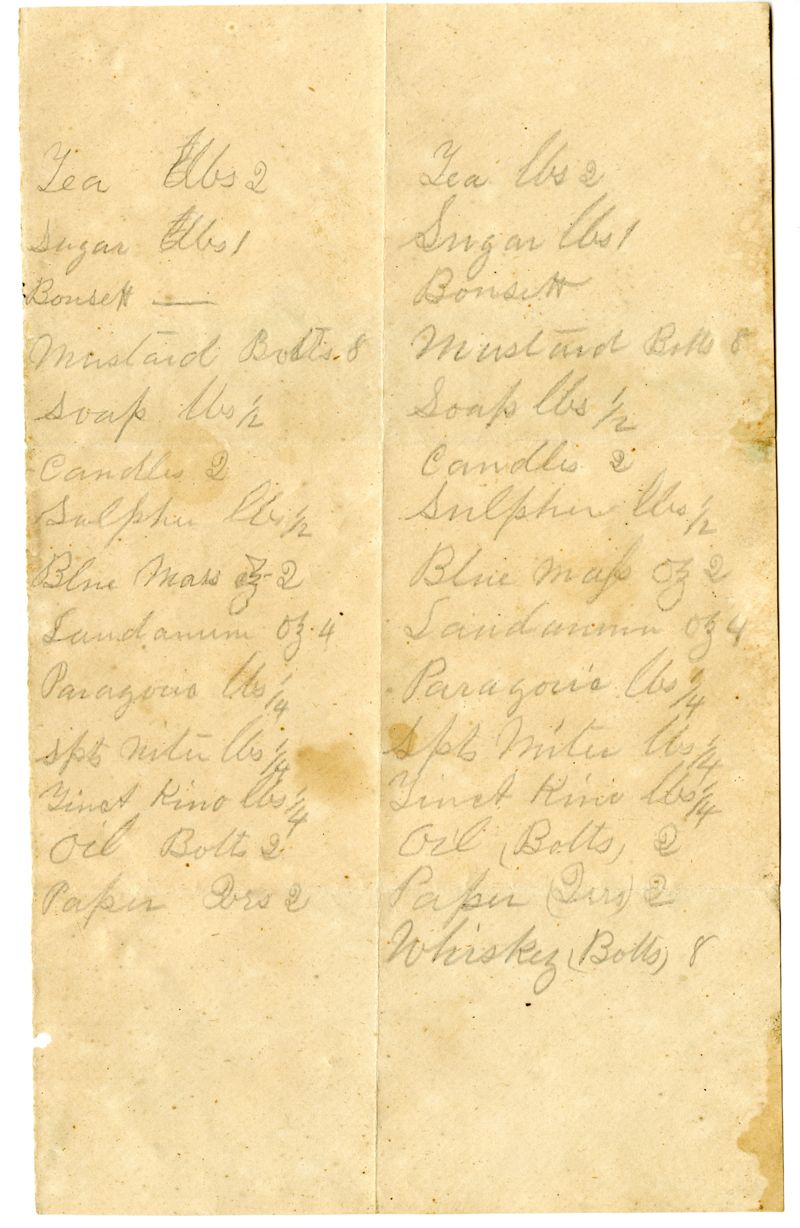 Tea lbs 2
Sugar lbs 1
Bonsett —
Mustard Botts 8
Soap lbs 1/2
Candles 2
Sulpher lbs 1/2
Blue Mass oz 2
Laudanum oz 4
Paragoric lbs 1/4
Spts Niter lbs 1/4
Tinct Kino lbs 1/4
Oil Botts 2
Paper Qrs 2
Tea lbs 2
Sugar lbs 1
Bonsett
Mustard Botts 8
Soap lbs 1/2
Candles 2
Sulpher lbs 1/2
Blue Mass oz 2
Laudanum oz 4
Paragoric lbs 1/4
Spts Niter lbs 1/4
Tinct Kino lbs 1/4
Oil (Botts) 2
Paper (Qrs) 2
Whiskey (Botts) 8